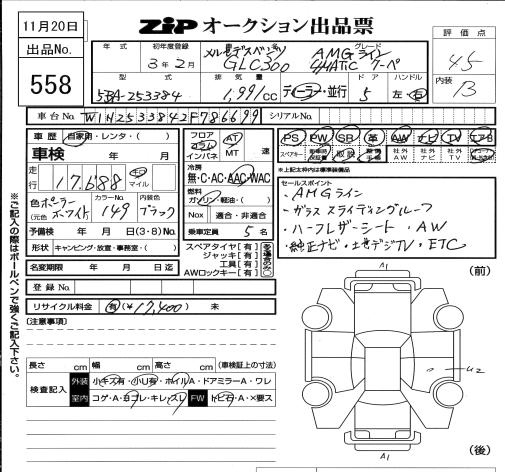 11月20日
ZIP オークション出品票
評価点
4.5
出品No.
558
年式
初年度登録
3年2月
メルセデスベンツ
GLC300
グレード
AMGライン
4MATIC クーペ
内装
B
型式
5BA-253384
排気量
1,991 CC
ディーラー・並行
ドア
5
ハンドル
左・右
車台No.
W1N2533842F786699
シリアルNo.
車歴 自家用・レンタ・( )
車検 年 月
走行
17,688 キロ マイル
色
(元色)
ポーラーホワイト
カラーNo.
149
内装色
ブラック
予備検 年 月 日(3・8)No.
形状 キャンピング・放置・事務室・( )
名変期限 年 月 日迄
フロア
コラム
インパネ
AT
MT
速
冷房
無・C・AC・AAC・WAC
燃料
ガソリン・軽油・( )
Nox 適合・非適合
乗車定員 5 名
スペアタイヤ【有】
ジャッキ【有】
工具【有】
AWロックキー【有】
PS PW SR 革 AW ナビ TV エアB
スペアキー 取説 社外AW 社外ナビ 社外TV
※上記太枠内は標準装備品
セールスポイント
・AMGライン
・ガラススライディングルーフ
・ハーフレザーシート・AW
・純正ナビ・地デジTV・ETC
登録No.
リサイクル料金 有(¥17,400) 未
(注意事項)
長さ cm 幅 cm 高さ cm (車検証上の寸法)
検査記入
外装 小キズ有・小U有・ホイルA・ドアミラーA・ワレ
室内 コゲ・A・ヨゴレ・キレ・スレ FW トビ石・A・X要ス
※ご記入の際はボールペンで強くご記入下さい。
(前)
A1
U2
A1
(後)